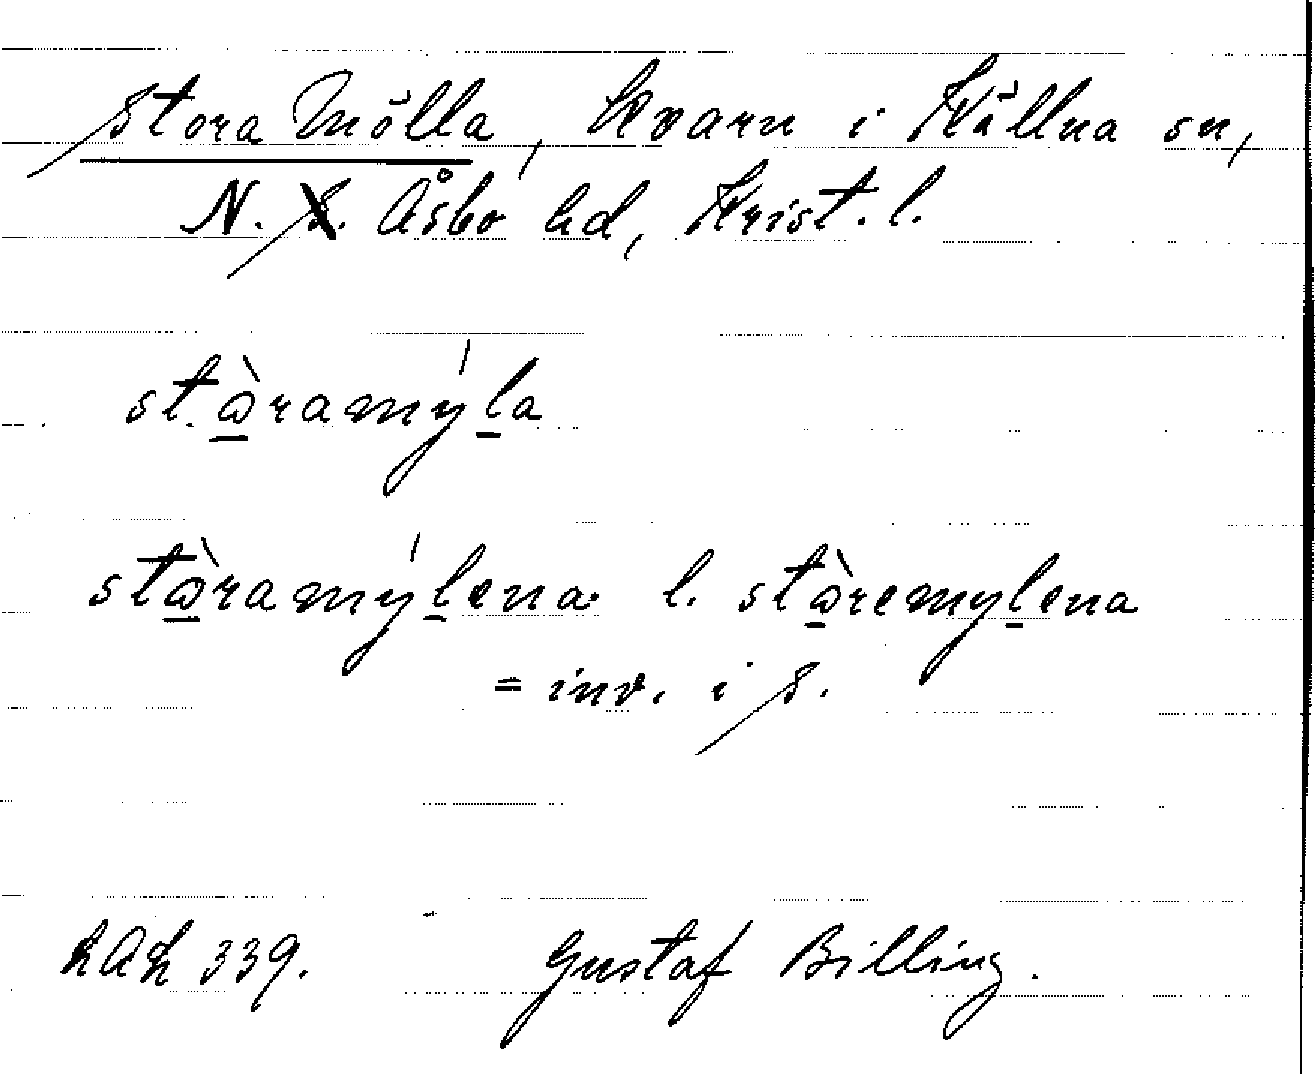 Stora Mölla, kvarn i Källna sn,
N. Åsbo hd, Krist. l.
stàramýla
stàramýlena l. stàremylena
= inv. i S.
LAL 339. Gustaf Billing.